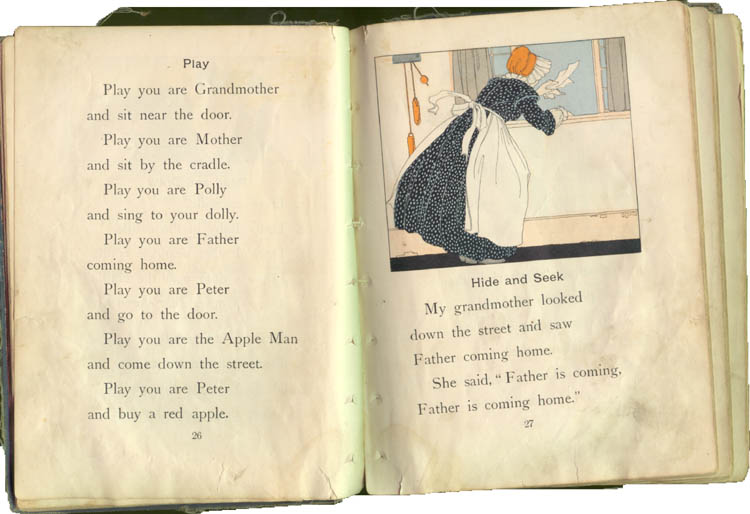 Play
Play you are Grandmother
and sit near the door.
Play you are Mother
and sit by the cradle.
Play you are Polly
and sing to your dolly.
Play you are Father
coming home.
Play you are Peter
and go to the door.
Play you are the Apple Man
and come down the street.
Play you are Peter
and buy a red apple.
26
Hide and Seek
My grandmother looked
down the street and saw
Father coming home.
She said, “Father is coming,
Father is coming home.”
27